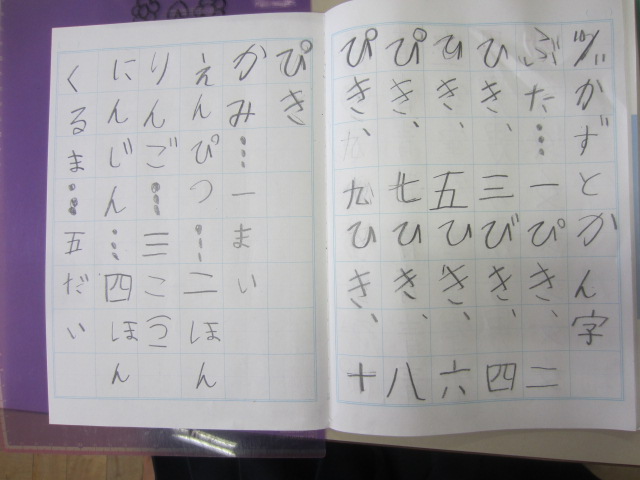 かずとかん字
ぶた…一ぴき、二
ひき、三びき、四
ひき、五ひき、六
ぴき、七ひき、八
ぴき、九ひき、十
ぴき
かみ…一まい
えんぴつ…二ほん
りんご…三こ(つ)
にんじん…四ほん
くるま…五だい